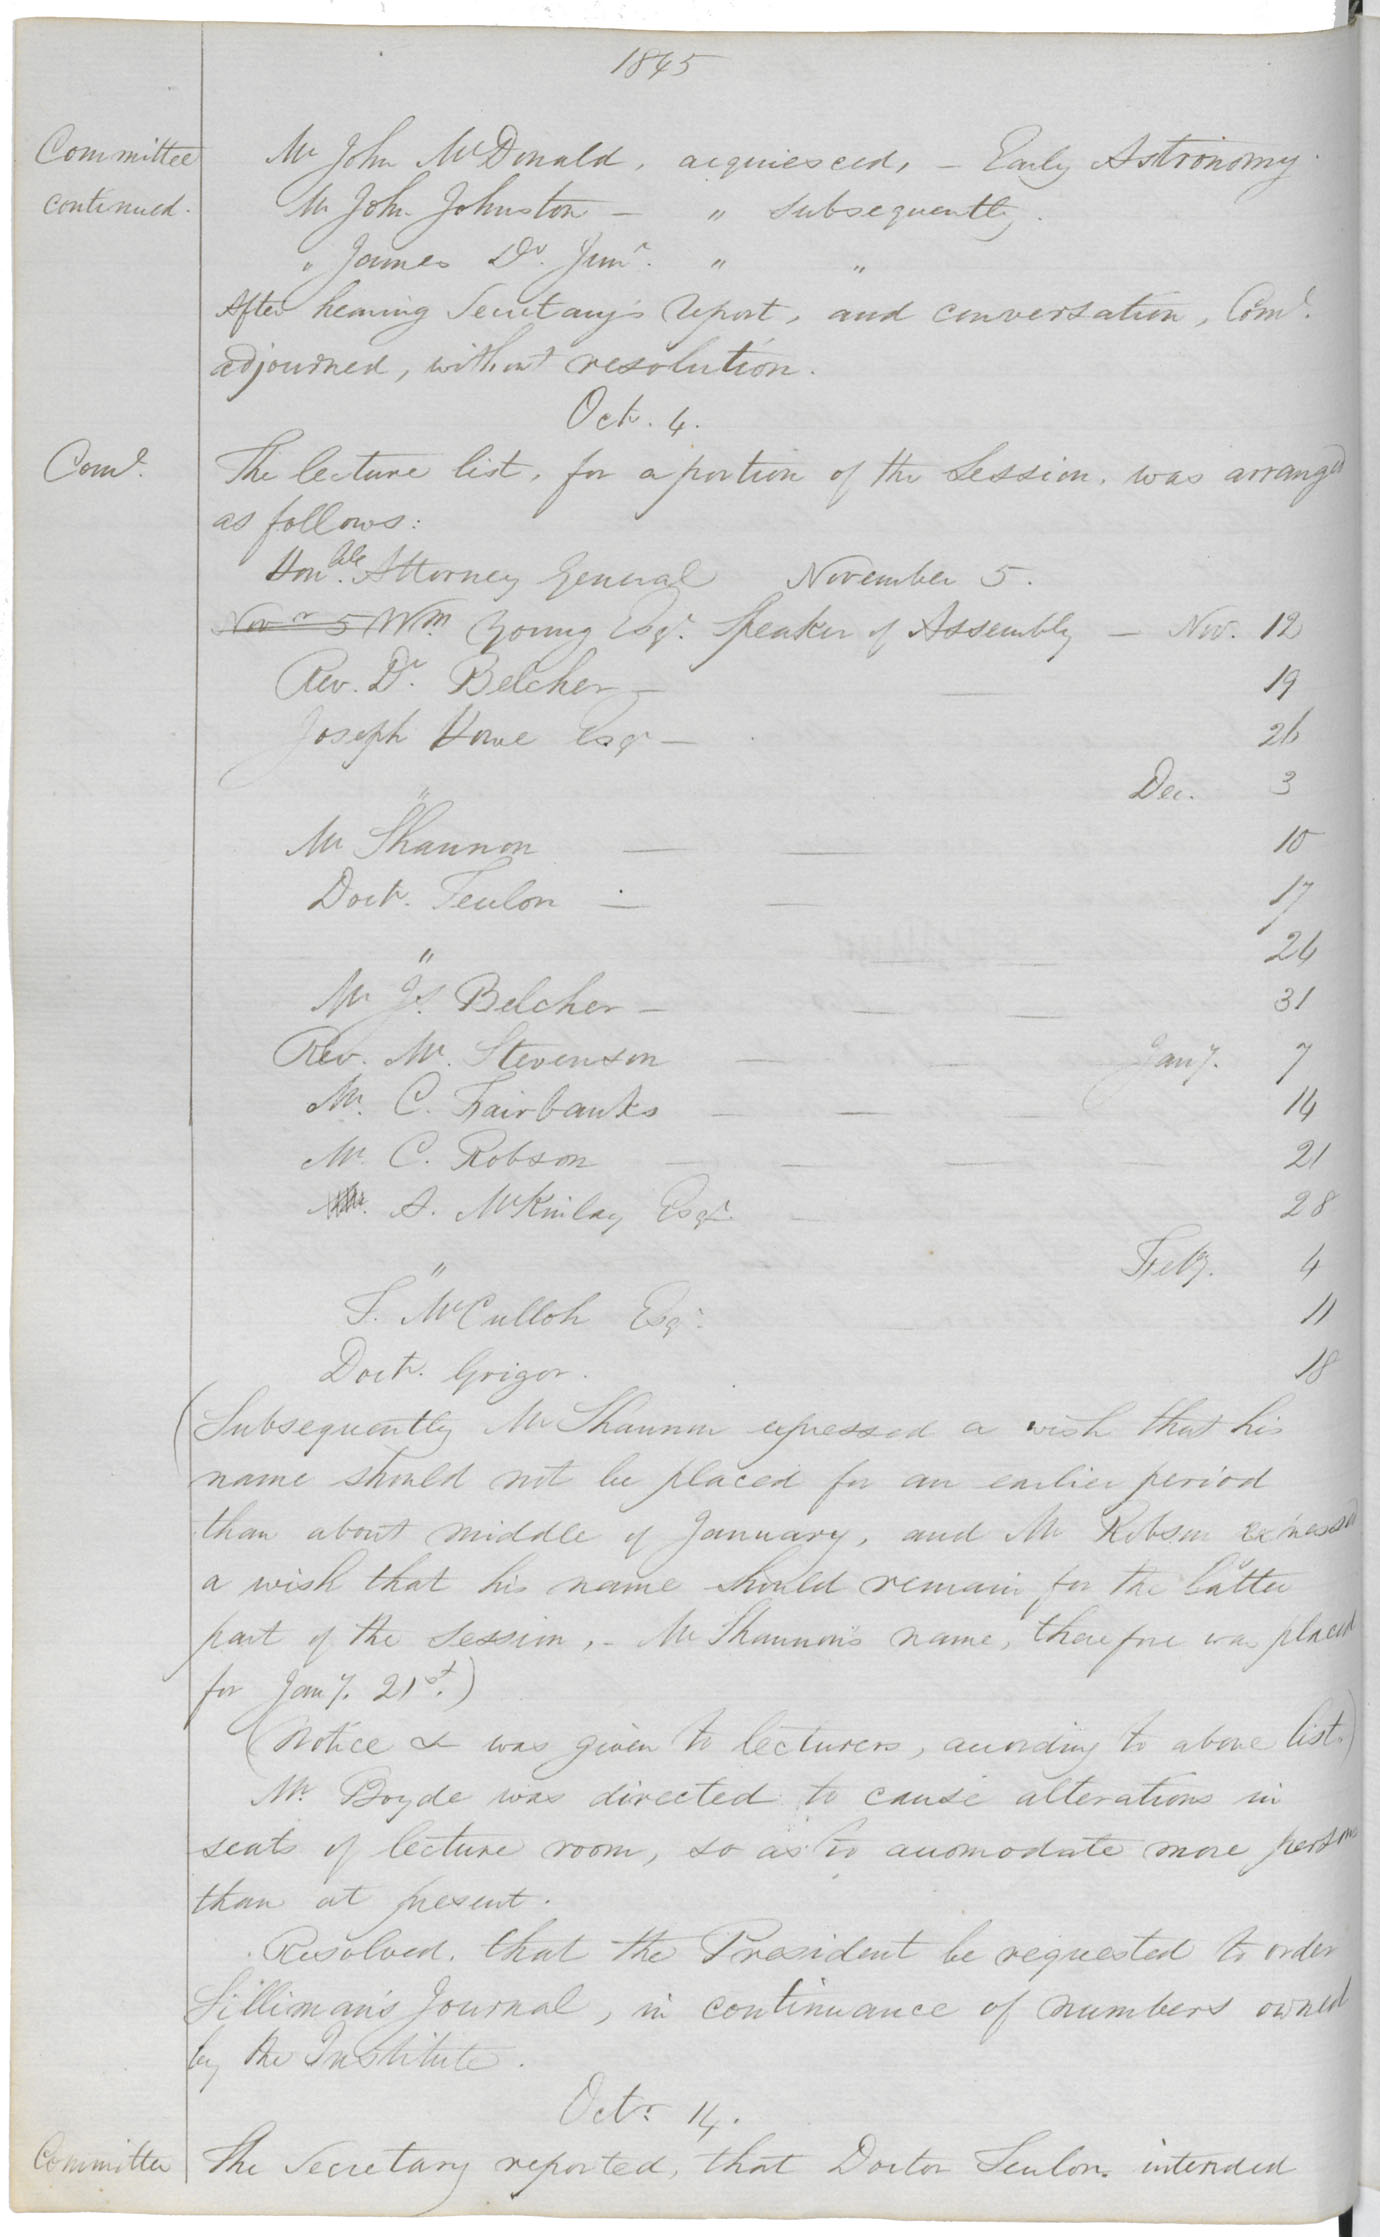 1845
Committee
continued.
Mr John McDonald, acquiesced, — Early Astronomy.
Mr John Johnston — " subsequently.
" James Do. Junr. " "
After hearing Secretary's report, and conversation, Come.
adjourned, without resolution.
Octr. 4.
Come.
The lecture list, for a portion of the Session, was arranged
as follows:
Honble. Attorney General November 5.
Novr 5 Wm. Young Esqr. Speaker of Assembly — Nov. 12
Rev. Dr. Belcher — — 19
Joseph Howe Esqr — 26
" Dec. 3
Mr Shannon — — 10
Doctr. Teulon — — 17
" — — 24
Mr Js. Belcher — — — 31
Rev. Mr. Stevenson — — Jany. 7
Mr. C. Fairbanks — — 14
Mr. C. Robson — — — — 21
Mr. A. McKinlay Esqr — 28
" Feby. 4
T. McCulloh Esqr. — 11
Doctr. Grigor. 18
(Subsequently Mr Shannon expressed a wish that his
name should not be placed for an earlier period
than about middle of January, and Mr Robson expressed
a wish that his name should remain for the latter
part of the session, — Mr Shannon's name, therefore was placed
for Jany. 21st.)
(Notice &c was given to lecturers, according to above list.)
Mr. Boyde was directed to cause alterations in
seats of lecture room, so as to acomodate more persons
than at present.
Resolved, that the President be requested to order
Silliman's Journal, in continuance of numbers owned
by the Institute.
Octr. 14.
Committee
The Secretary reported, that Doctor Teulon intended